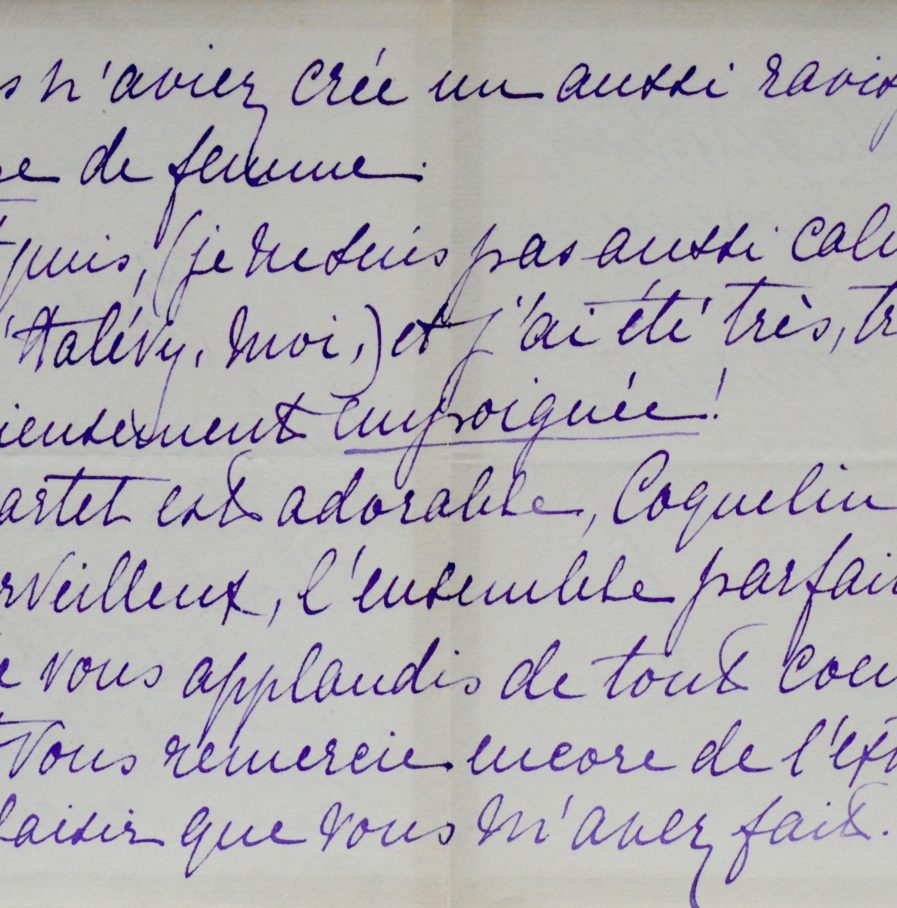 s n'aviez crée un aussi ravis
e de femme.
t puis, (je ne suis pas aussi calm
'Halévy, moi,) et j'ai été très, tr
ieusement empoignée!
artet est adorable, Coquelin
rveilleux, l'ensemble parfai
e vous applaudis de tout coeu
t vous remercie encore de l'ext
laisir que vous m'avez fait.